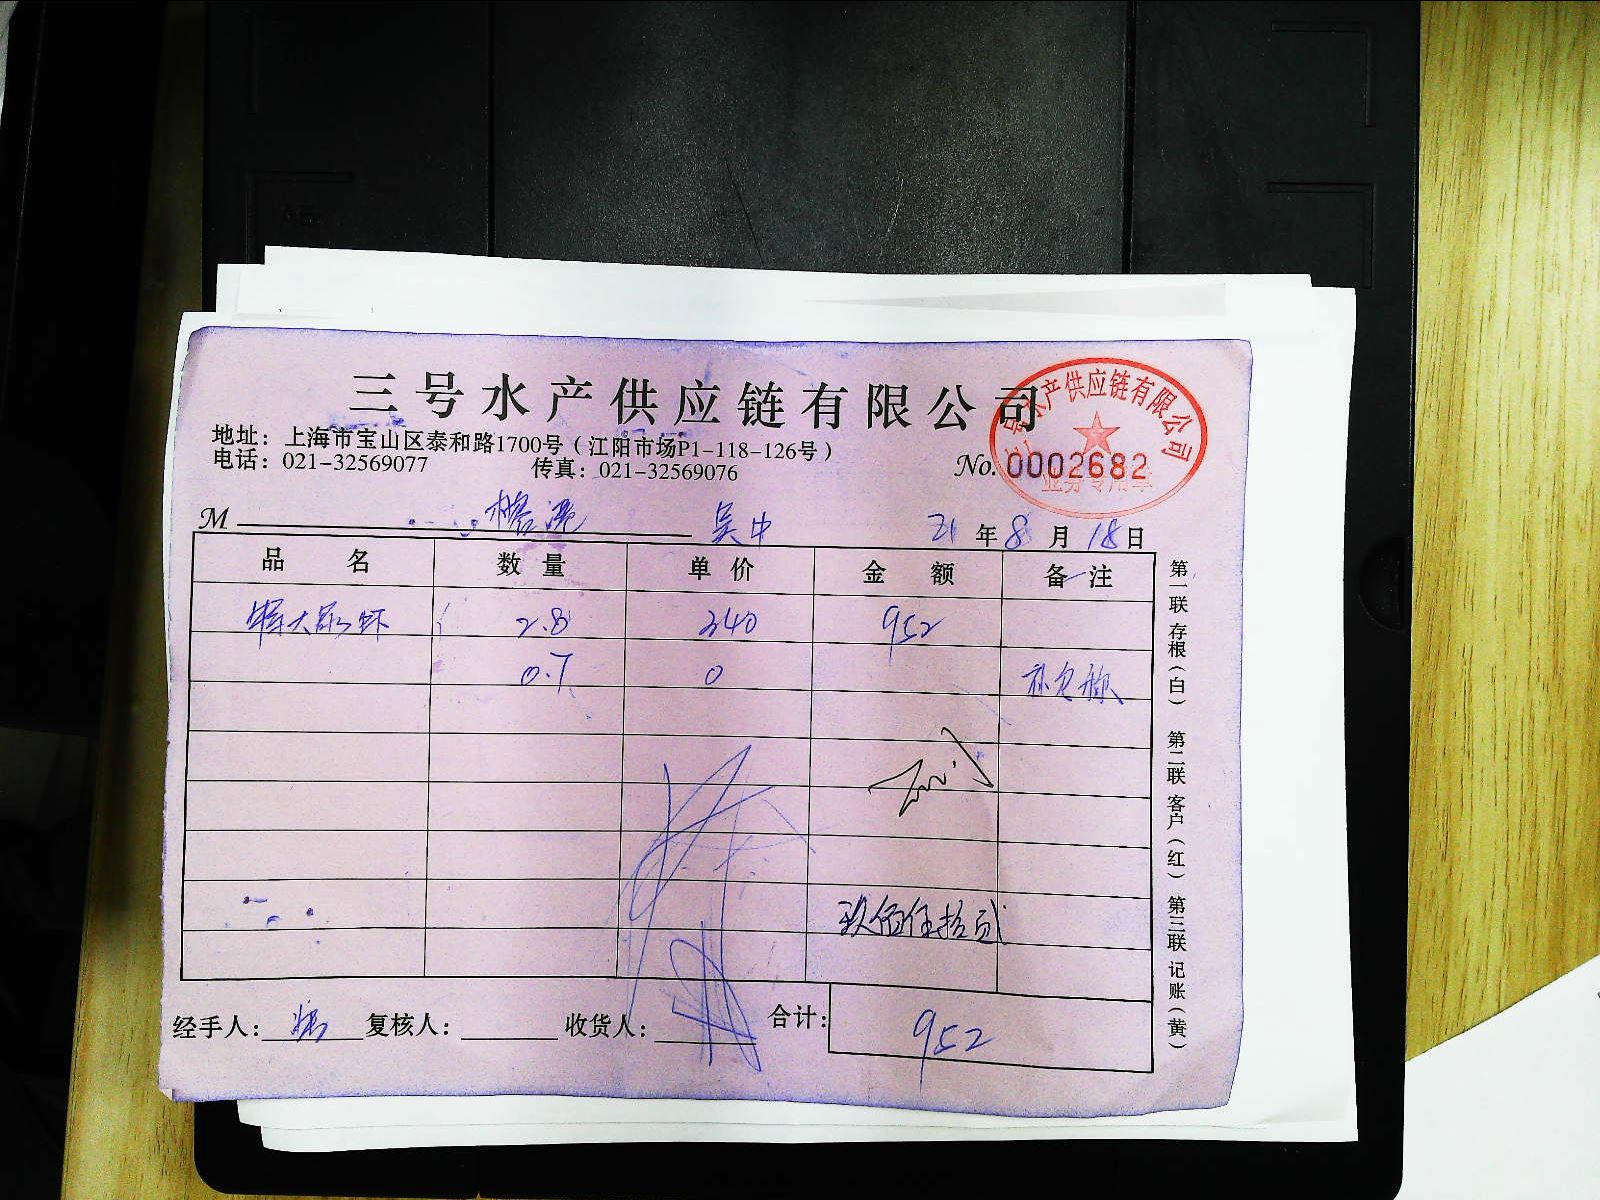 三号水产供应链有限公司
地址：上海市宝山区泰和路1700号（江阳市场P1-118-126号）
电话：021-32569077 传真：021-32569076
No. 0002682
水产供应链有限公司
业务专用章
M 榕港 吴中 21年8月18日
品名 数量 单价 金额 备注
2.8 340 952
0.7 0
玖佰伍拾贰
经手人： 复核人： 收货人： 合计： 952
第一联 存根（白） 第二联 客户（红） 第三联 记账（黄）